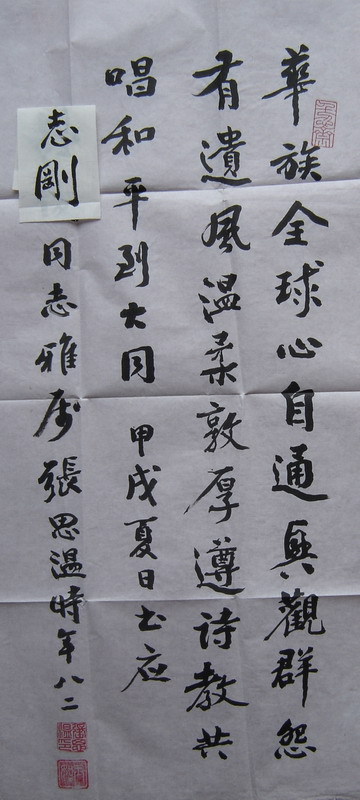 華族全球心自通興觀群怨
有遺風温柔敦厚遵詩教共
唱和平到大同甲戌夏日书应
志剛同志雅属張思温時年八二